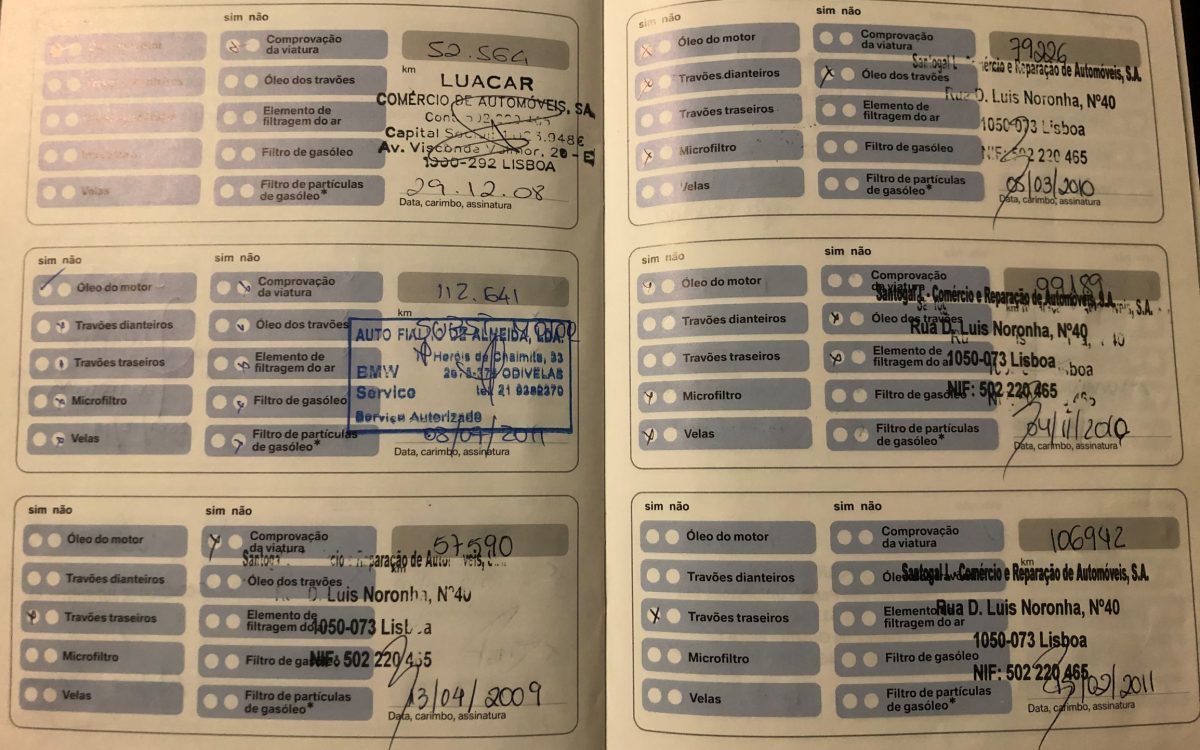 sim não
Comprovação
da viatura
52.564
km
Óleo dos travões
Elemento de
filtragem do ar
Filtro de gasóleo
Velas
Filtro de partículas
de gasóleo*
LUACAR
COMÉRCIO DE AUTOMÓVEIS, SA.
Capital
Av. Visconde Valmor,
1000-292 LISBOA
29.12.08
Data, carimbo, assinatura
sim não
sim não
Óleo do motor
Comprovação
da viatura
112.641
km
Travões dianteiros
Óleo dos travões
Travões traseiros
Elemento de
filtragem do ar
Microfiltro
Filtro de gasóleo
Velas
Filtro de partículas
de gasóleo*
AUTO DE ALMEIDA, LDA.
Heróis de Chaimite, 33
BMW
ODIVELAS
Service
Serviço Autorizado
Data, carimbo, assinatura
sim não
sim não
Óleo do motor
Comprovação
da viatura
57590
km
Travões dianteiros
Óleo dos travões
Travões traseiros
Elemento de
filtragem do
Microfiltro
Filtro de
Velas
Filtro de partículas
de gasóleo*
D. Luis Noronha, Nº40
1050-073
NIF: 502 220 465
13/04/2009
Data, carimbo, assinatura
sim não
sim não
Óleo do motor
Comprovação
da viatura
79226
km
Travões dianteiros
Óleo dos travões
Travões traseiros
Elemento de
filtragem do ar
Microfiltro
Filtro de gasóleo
Velas
Filtro de partículas
de gasóleo*
e Reparação de Automóveis, S.A.
Rua D. Luis Noronha, Nº40
1050-073 Lisboa
502 220 465
05/03/2010
Data, carimbo, assinatura
sim não
sim não
Óleo do motor
Comprovação
da viatura
99189
Travões dianteiros
Óleo dos travões
Travões traseiros
Elemento de
filtragem do ar
Microfiltro
Filtro de gasóleo
Velas
Filtro de partículas
de gasóleo*
Santogal L - Comércio e Reparação de Automóveis, S.A.
Rua D. Luis Noronha, Nº40
1050-073 Lisboa
NIF: 502 220 465
04/11/2010
Data, carimbo, assinatura
sim não
sim não
Óleo do motor
Comprovação
da viatura
106942
km
Travões dianteiros
Travões traseiros
Elemento
filtragem do ar
Microfiltro
Filtro de gasóleo
Velas
Filtro de partículas
de gasóleo*
Santogal L - Comércio e Reparação de Automóveis, S.A.
Rua D. Luis Noronha, Nº40
1050-073 Lisboa
NIF: 502 220 465
Data, carimbo, assinatura